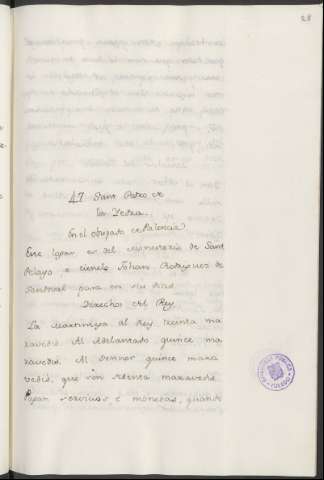 28
47 Sant Pedro de
la Yedra.
En el obispado de Palencia
Este logar es del Monesterio de Sant
Pelayo e tienelo Johan Rodriguez de
Sandoval para en sus dias
Derechos del Rey
La martiniega al Rey treinta ma
ravedis. Al Adelantado quince ma
ravedis. Al Sennor quince mara
vedis, que son treinta maravedis.
Pagan servicios e monedas, quando
BIBLIOTECA PUBLICA
TOLEDO